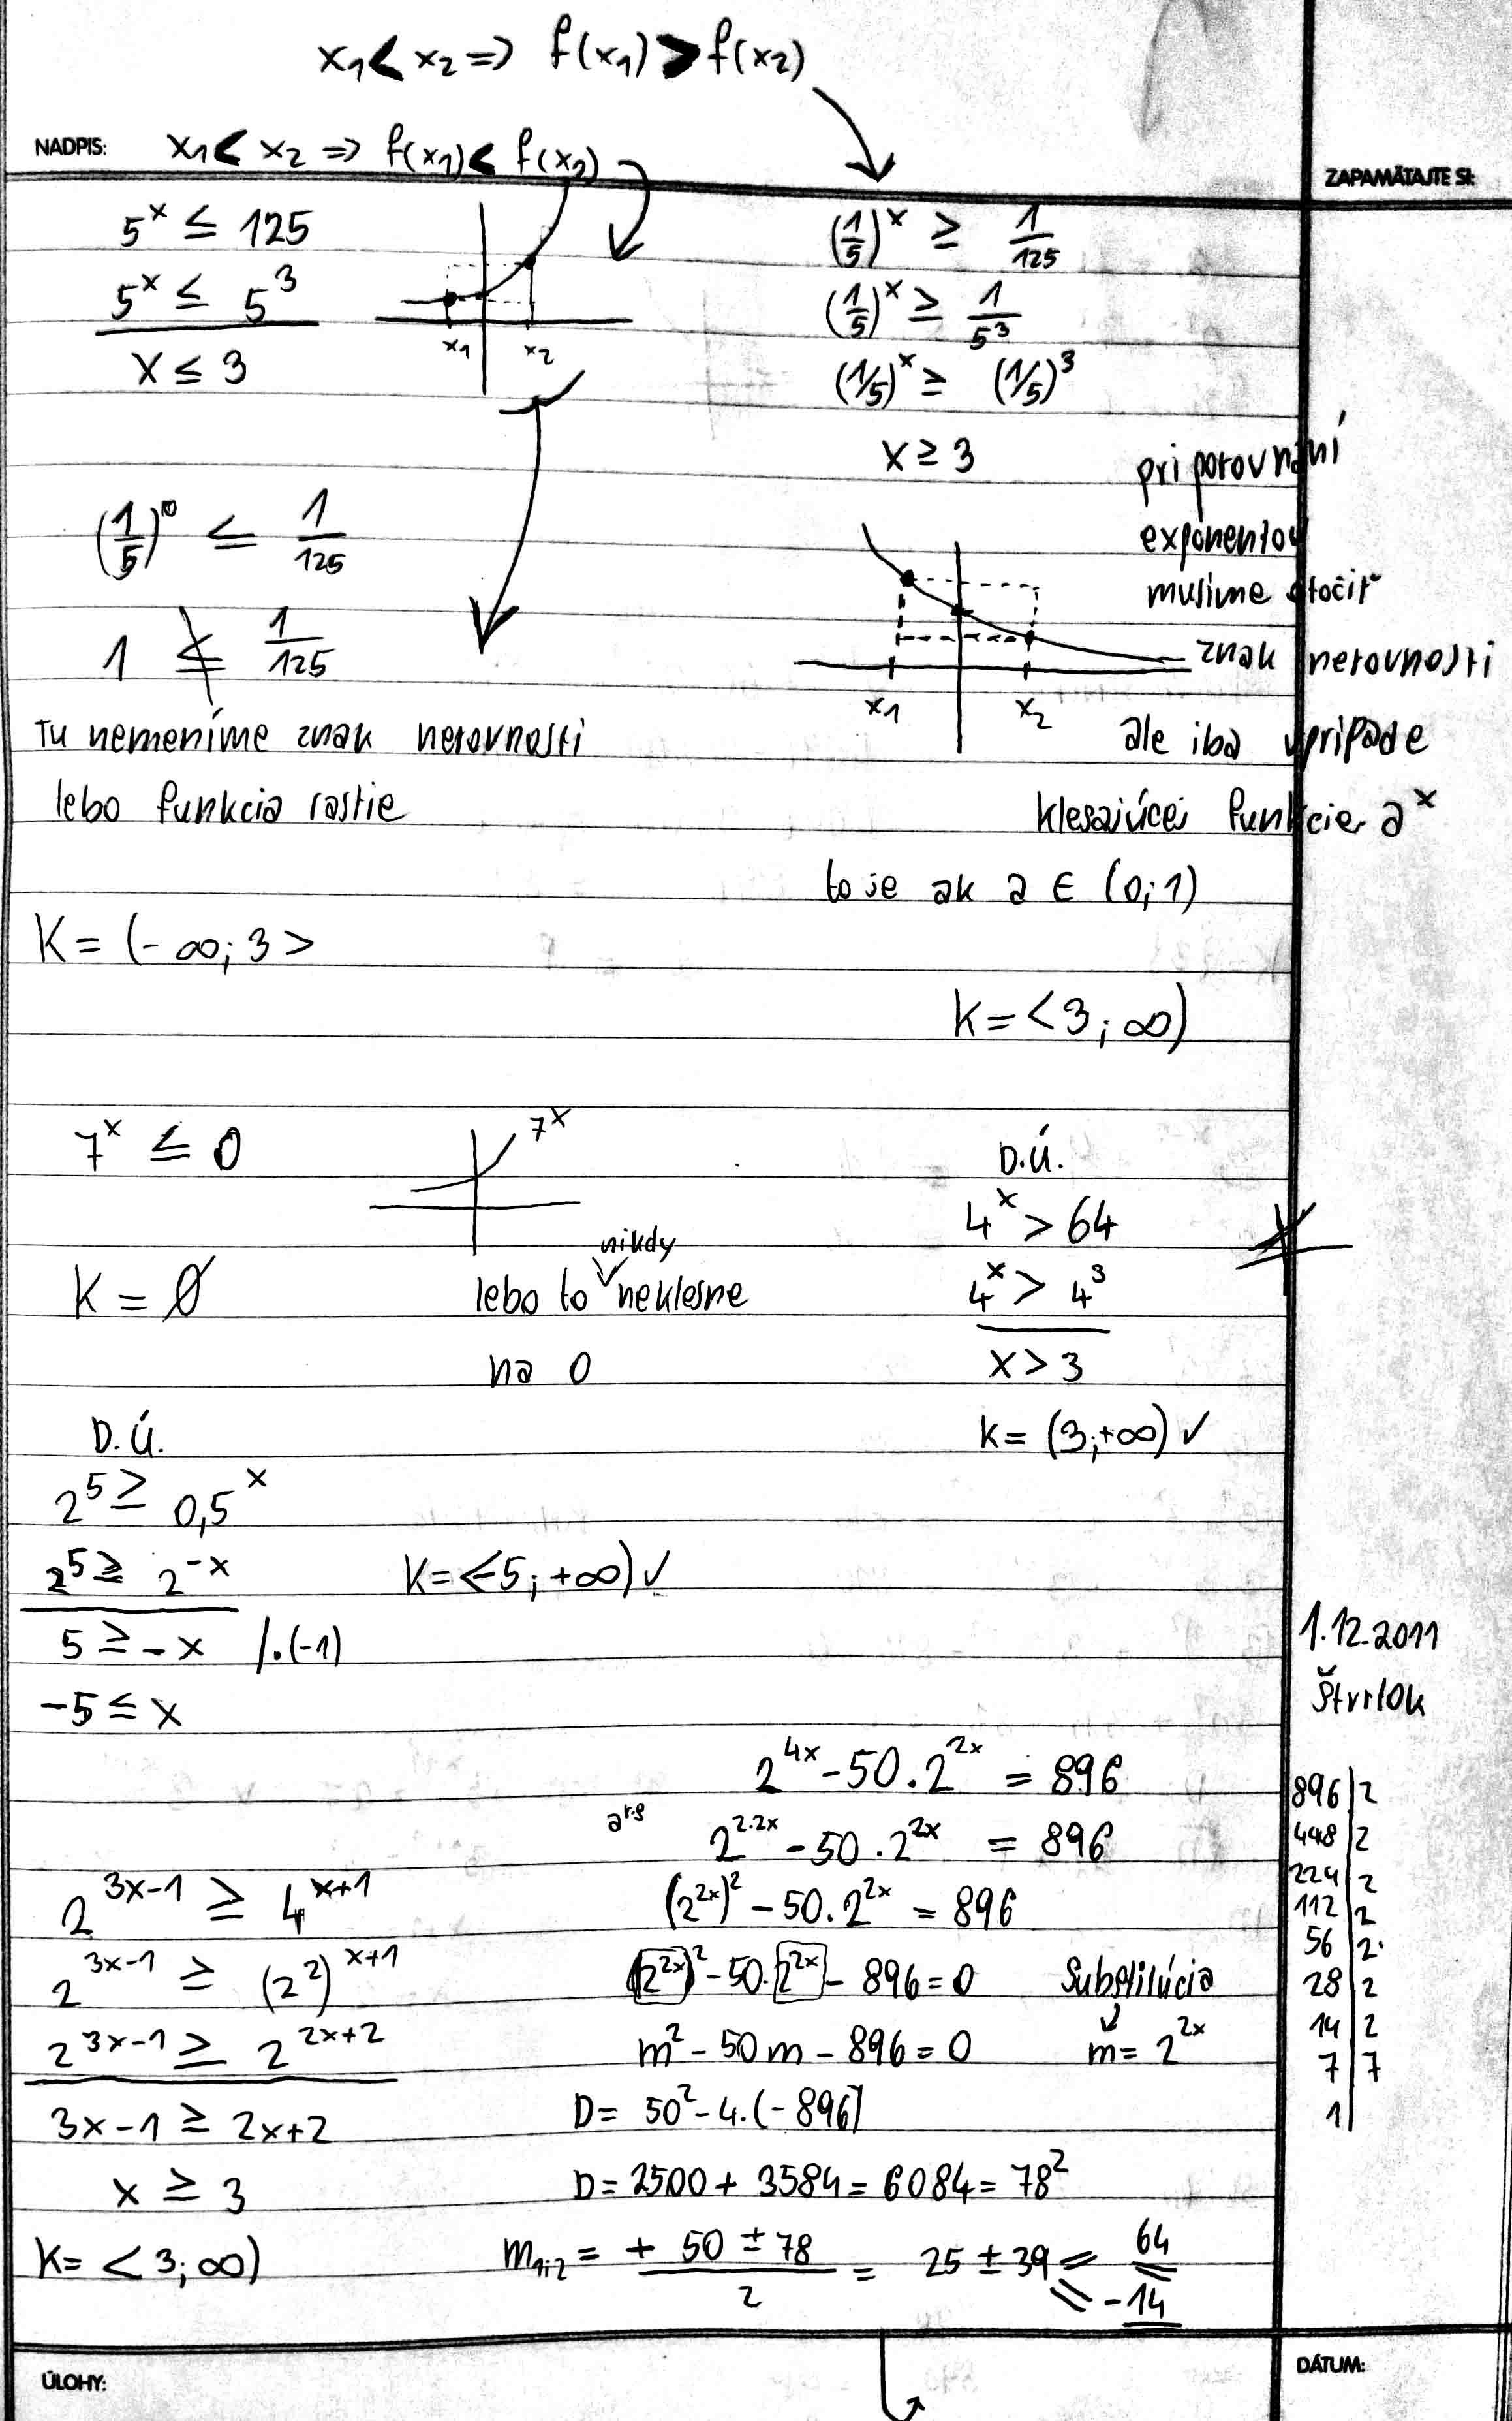 x₁ < x₂ => f(x₁) > f(x₂)
NADPIS: x₁ < x₂ => f(x₁) < f(x₂)
ZAPAMÄTAJTE SI:
5^x ≤ 125
5^x ≤ 5^3
x ≤ 3
x₁ x₂
(1/5)^x ≥ 1/125
(1/5)^x ≥ 1/5^3
(1/5)^x ≥ (1/5)^3
x ≥ 3
pri porovnání
exponentov
musíme otočiť
znak nerovnosti
x₁ x₂
ale iba v prípade
klesajúcej funkcie a^x
to je ak a ∈ (0;1)
K = <3; ∞)
(1/5)^0 ≤ 1/125
1 ≰ 1/125
Tu nemeníme znak nerovnosti
lebo funkcia rastie
K = (-∞; 3>
7^x ≤ 0
7^x
K = Ø
lebo to nikdy neklesne
na 0
D.Ú.
4^x > 64
4^x > 4^3
x > 3
K = (3; +∞) ✓
D.Ú.
2^5 ≥ 0,5^x
2^5 ≥ 2^-x
K = <-5; +∞) ✓
5 ≥ -x /.(-1)
-5 ≤ x
1.12.2011
Štvrtok
2^3x-1 ≥ 4^x+1
2^3x-1 ≥ (2^2)^x+1
2^3x-1 ≥ 2^2x+2
3x-1 ≥ 2x+2
x ≥ 3
K = <3; ∞)
2^4x - 50 . 2^2x = 896
a^r.s
2^2.2x - 50 . 2^2x = 896
(2^2x)^2 - 50 . 2^2x = 896
(2^2x)^2 - 50 . 2^2x - 896 = 0 Substitúcia
m^2 - 50m - 896 = 0 m = 2^2x
D = 50^2 - 4.(-896)
D = 2500 + 3584 = 6084 = 78^2
m₁;₂ = + 50 ± 78 / 2 = 25 ± 39 = 64
= -14
896 | 2
448 | 2
224 | 2
112 | 2
56 | 2
28 | 2
14 | 2
7 | 7
1 |
ÚLOHY:
DÁTUM: